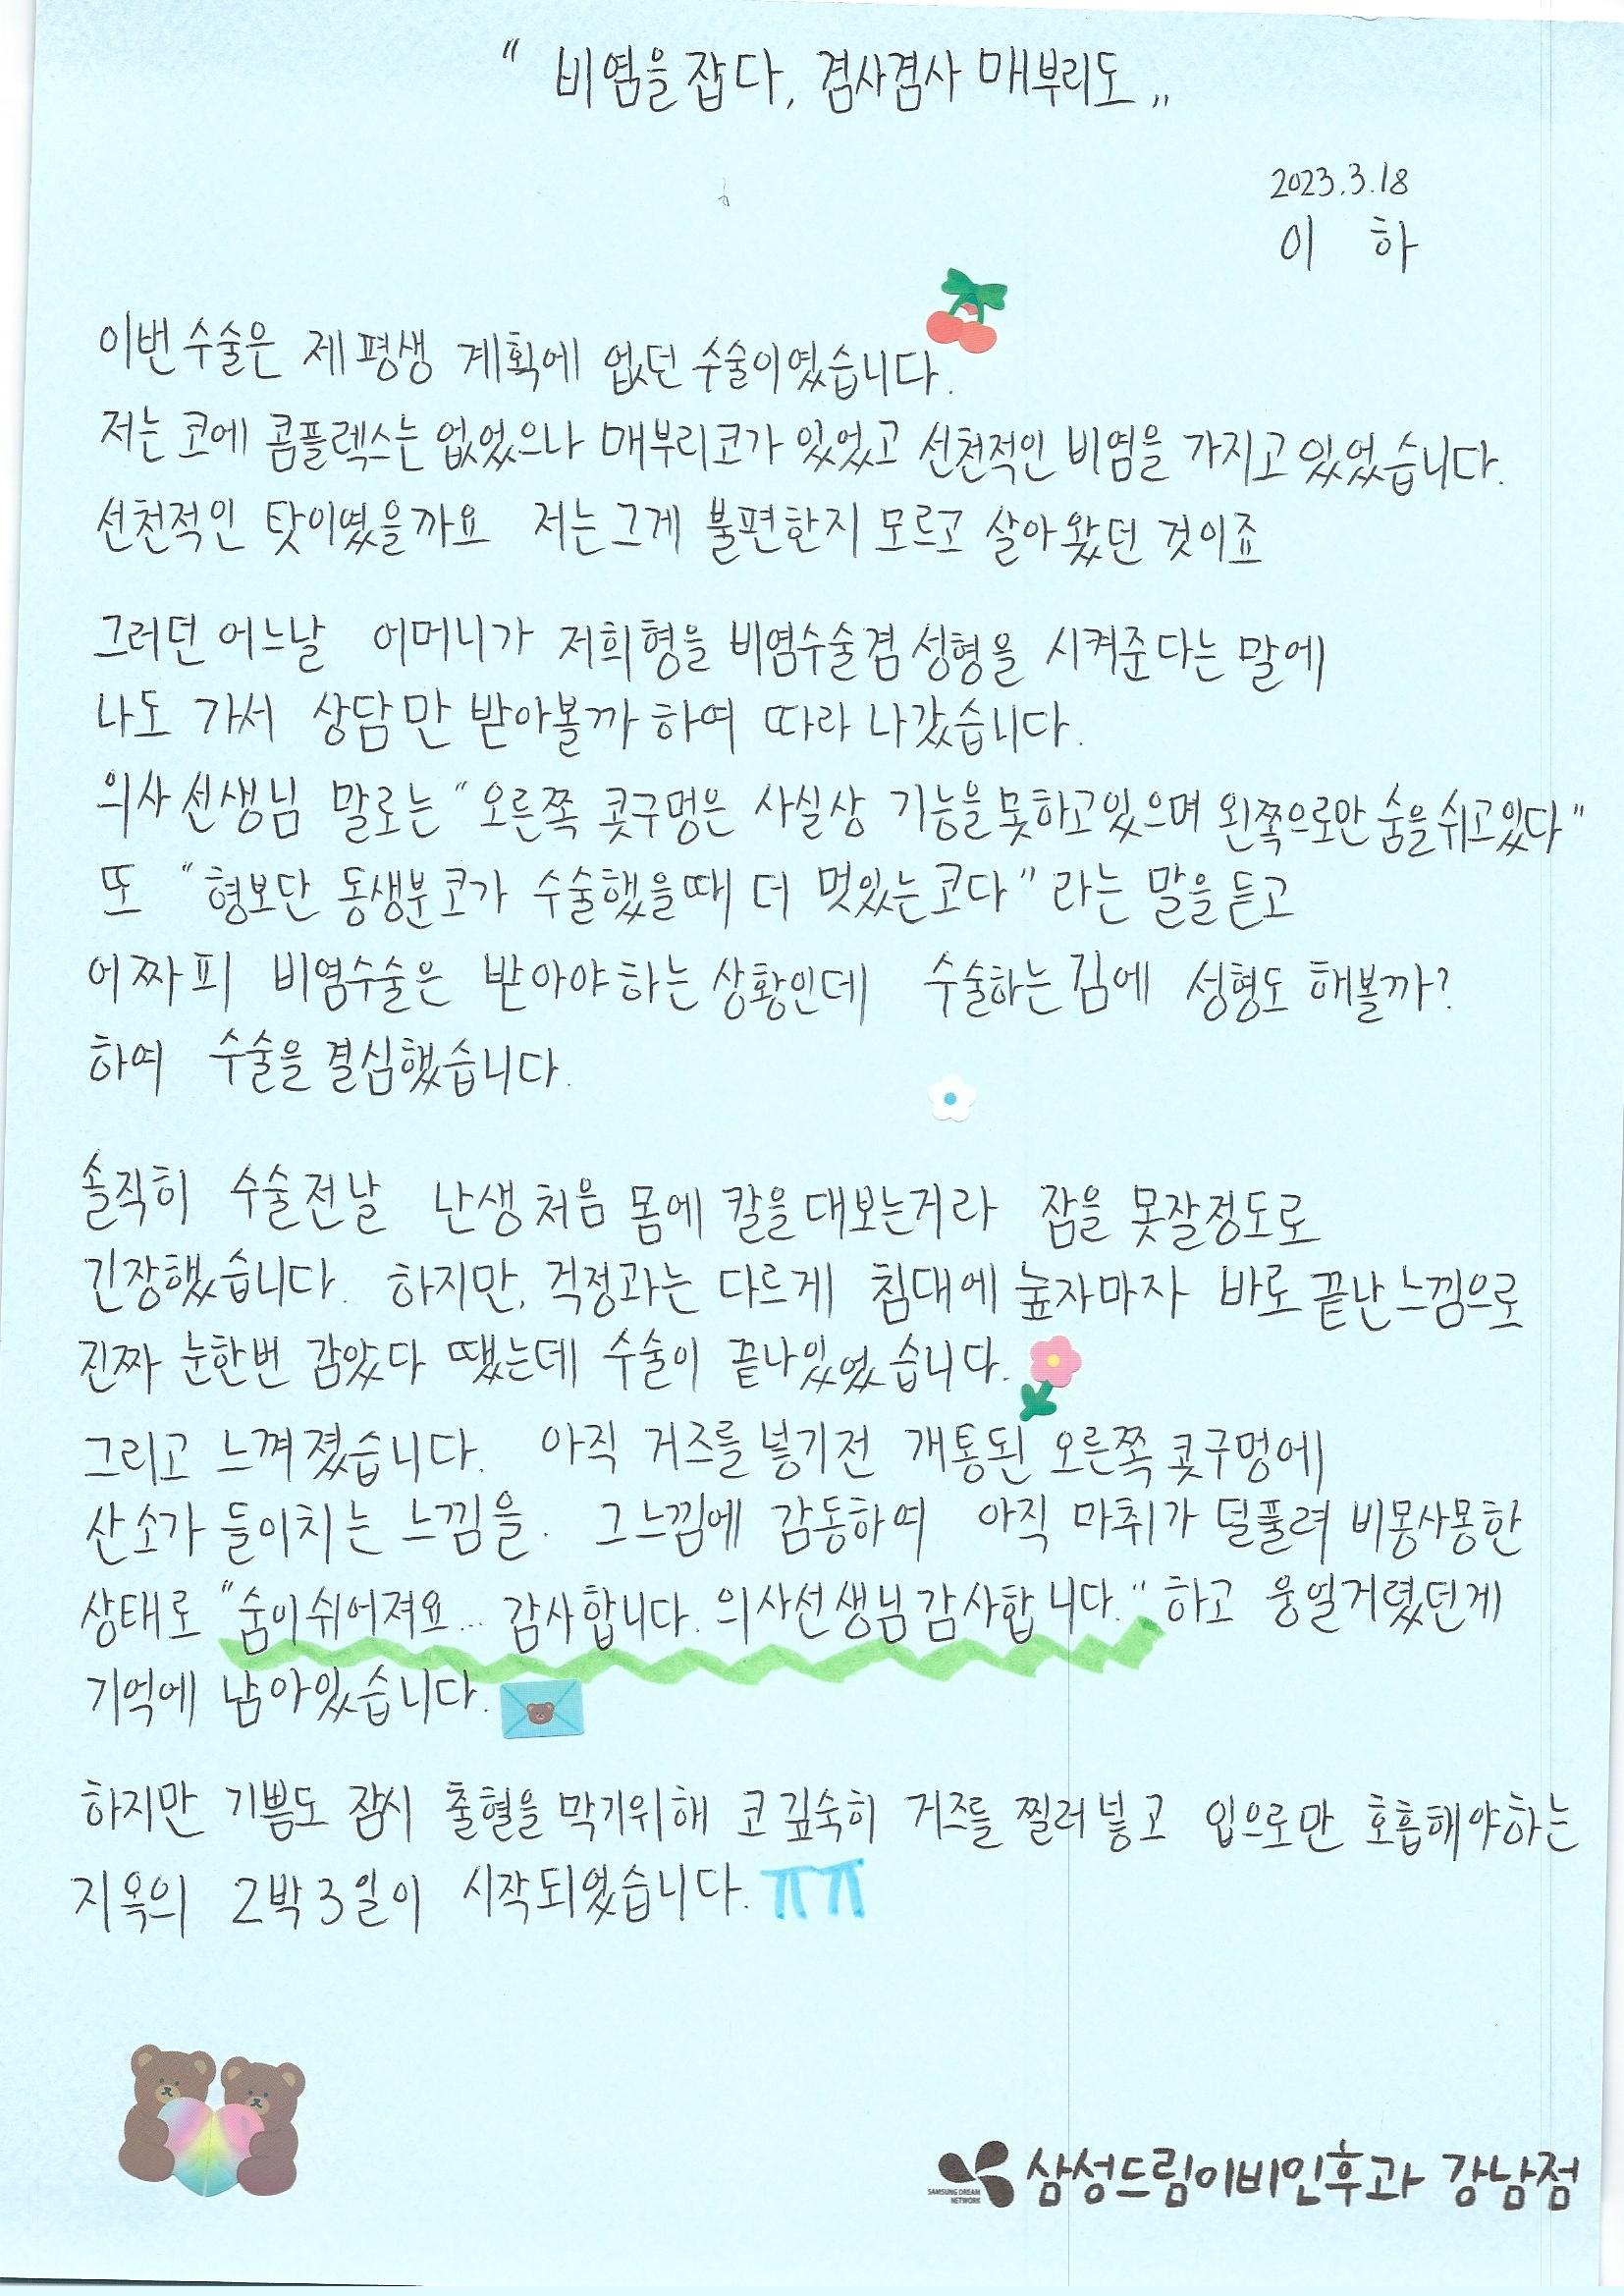 " 비염을 잡다, 겸사겸사 매부리도 „
2023.3.18
이 하
이번 수술은 제 평생 계획에 없던 수술이였습니다.
저는 코에 콤플렉스는 없었으나 매부리코가 있었고 선천적인 비염을 가지고 있었습니다.
선천적인 탓이였을까요 저는 그게 불편한지 모르고 살아왔던 것이죠
그러던 어느날 어머니가 저희형을 비염수술겸 성형을 시켜준다는 말에
나도 가서 상담만 받아볼까 하여 따라 나갔습니다.
의사선생님 말로는 "오른쪽 콧구멍은 사실상 기능을 못하고있으며 왼쪽으로만 숨을 쉬고있다"
또 "형보단 동생분코가 수술했을때 더 멋있는코다" 라는 말을 듣고
어짜피 비염수술은 받아야하는 상황인데 수술하는김에 성형도 해볼까?
하여 수술을 결심했습니다.
솔직히 수술전날 난생처음 몸에 칼을 대보는거라 잠을 못잘정도로
긴장했습니다. 하지만, 걱정과는 다르게 침대에 눞자마자 바로 끝난느낌으로
진짜 눈한번 감았다 땠는데 수술이 끝나있었습니다.
그리고 느껴졌습니다. 아직 거즈를 넣기전 개통된 오른쪽 콧구멍에
산소가 들이치는 느낌을. 그느낌에 감동하여 아직 마취가 덜풀려 비몽사몽한
상태로 "숨이쉬어져요... 감사합니다. 의사선생님감사합니다." 하고 웅얼거렸던게
기억에 남아있습니다.
하지만 기쁨도 잠시 출혈을 막기위해 코 깊숙히 거즈를 찔러넣고 입으로만 호흡해야하는
지옥의 2박3일이 시작되었습니다. ㅠㅠ
SAMSUNG DREAM NETWORK 삼성드림이비인후과 강남점